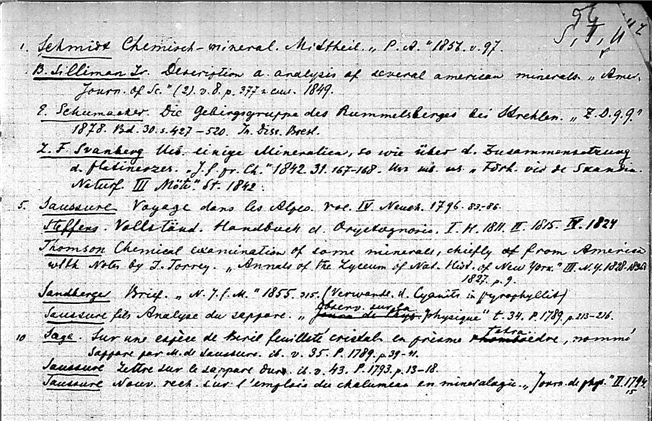 1. Schmidt Chemisch-mineral. Mittheil. „P. A." 1857. v. 97.
B. Silliman Jr. Description a. analysis of several american minerals. „Amer.
Journ. of Sc." (2). v. 8. p. 377 1849.
E. Schumacher. Die Gebirgsgruppe des Rummelsberges bei Strehlen. „Z. D. g. G."
1878. Bd. 30. s. 427-520. In. Diss. Bresl.
L. F. Svanberg Ueb. einige Mineralien, so wie über d. Zusammensetzung
d. Platinerzes. „J. f. pr. Ch." 1842. 31. 167-168. „Förh. vid de Skandin.
Naturf. III Möte" St. 1842.
5. Saussure Voyage dans les Alpes. vol. IV. Neuch. 1796. 83-86.
Steffens. Vollständ. Handbuch d. Oryctognosie. I. H. 1811. II. 1815. IV. 1824
Thomson Chemical examination of some minerals, chiefly of from America
with Notes by J. Torrey. „Annals of the Lyceum of Nat. Hist. of New York." III. N.Y. 1828.
1827. p. 9.
Sandberge Brief. „N. J. f. M." 1855. 315. (Verwandl. d. Cyanits in pyrophyllit)
Observ. sur la
Saussure fils Analyse du sappare. „Physique" t. 34. P. 1789. p. 213-216.
tetra
10. Sage. Sur une espèce de Beril feuilleté cristal. en prisme rhomboedre, nommé
Sappare par M. de Saussure. ib. v. 35. P. 1789. p. 39-41.
Saussure Lettre sur le sappare dur. ib. v. 43. P. 1793. p. 13-18.
Saussure Nouv. rech. sur l'emploi du chalumeau en mineralogie. „Journ. de phys." II. 1794.